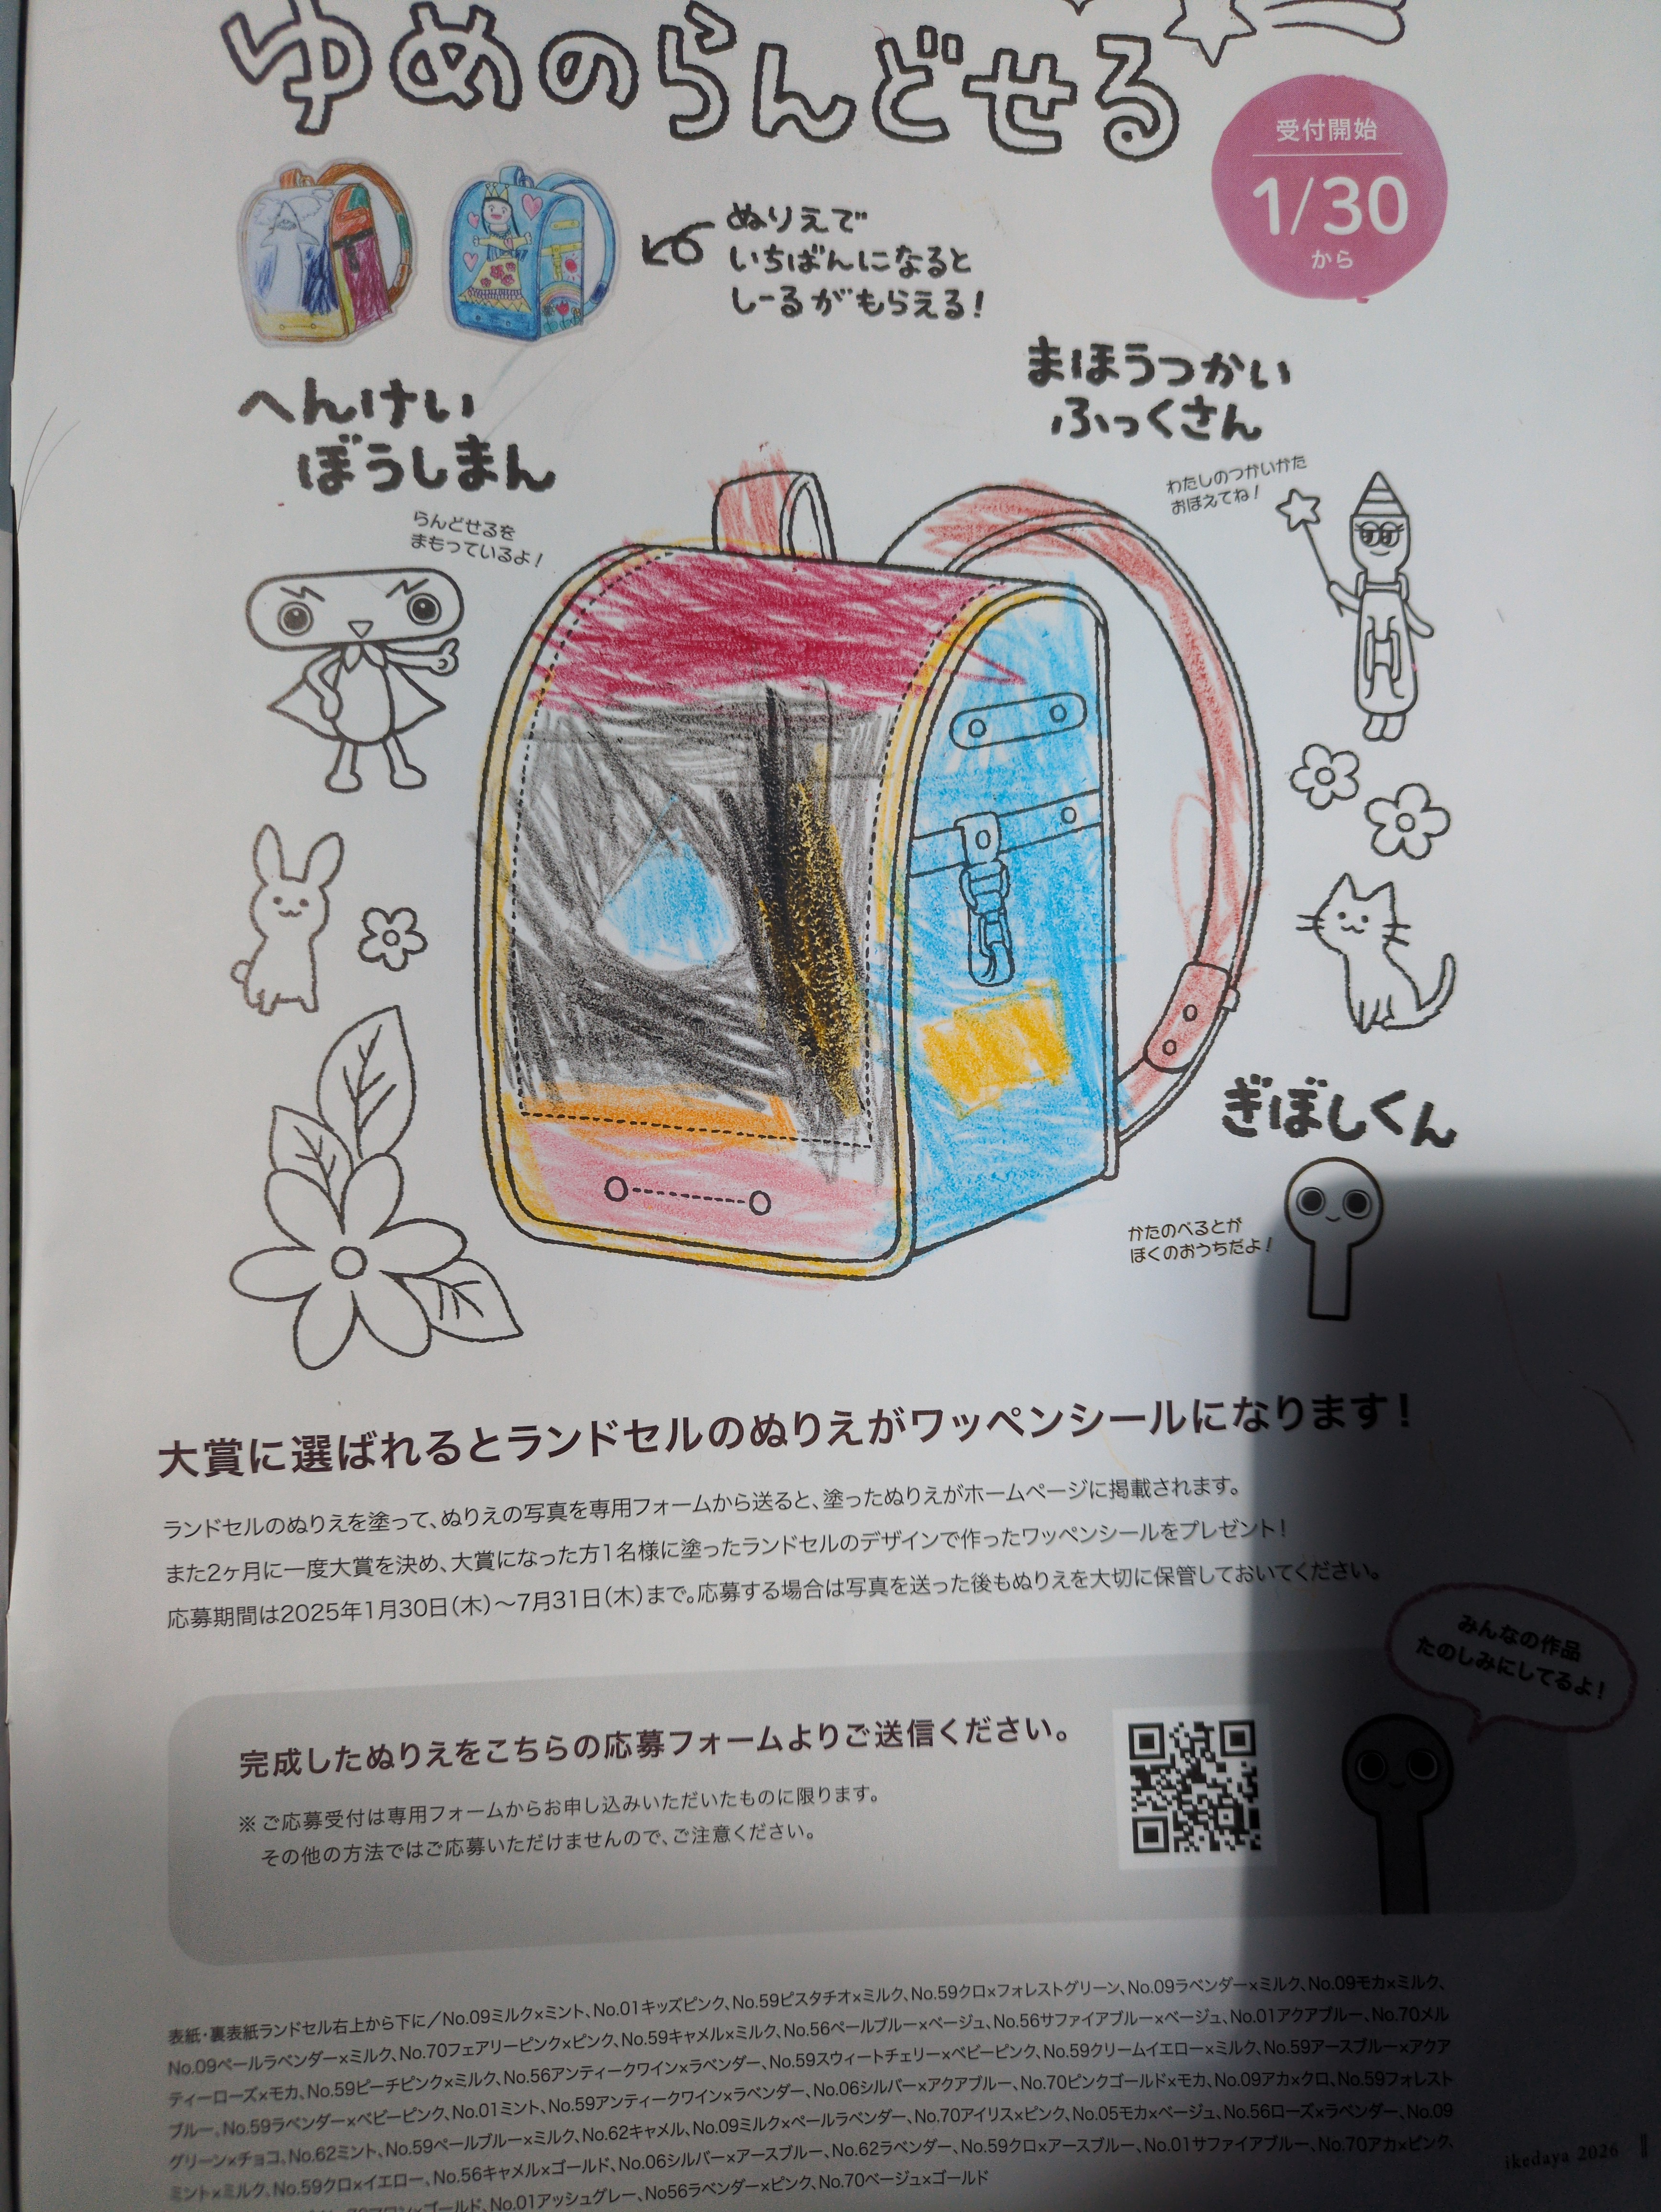 ゆめのらんどせる
受付開始
1/30
から
ぬりえで
いちばんになると
しーるがもらえる!
へんけい
ぼうしまん
らんどせるを
まもっているよ!
まほうつかい
ふっくさん
わたしのつかいかた
おぼえてね!
ぎぼしくん
かたのべるとが
ぼくのおうちだよ!
大賞に選ばれるとランドセルのぬりえがワッペンシールになります!
ランドセルのぬりえを塗って、ぬりえの写真を専用フォームから送ると、塗ったぬりえがホームページに掲載されます。
また2ヶ月に一度大賞を決め、大賞になった方1名様に塗ったランドセルのデザインで作ったワッペンシールをプレゼント!
応募期間は2025年1月30日(木)〜7月31日(木)まで。応募する場合は写真を送った後もぬりえを大切に保管しておいてください。
みんなの作品
たのしみにしてるよ!
完成したぬりえをこちらの応募フォームよりご送信ください。
※ご応募受付は専用フォームからお申し込みいただいたものに限ります。
その他の方法ではご応募いただけませんので、ご注意ください。
表紙・裏表紙ランドセル右上から下に/No.09ミルク×ミント、No.01キッズピンク、No.59ピスタチオ×ミルク、No.59クロ×フォレストグリーン、No.09ラベンダー×ミルク、No.09モカ×ミルク、
No.09ペールラベンダー×ミルク、No.70フェアリーピンク×ピンク、No.59キャメル×ミルク、No.56ペールブルー×ベージュ、No.56サファイアブルー×ベージュ、No.01アクアブルー、No.70メル
ティーローズ×モカ、No.59ピーチピンク×ミルク、No.56アンティークワイン×ラベンダー、No.59スウィートチェリー×ベビーピンク、No.59クリームイエロー×ミルク、No.59アースブルー×アクア
ブルー、No.59ラベンダー×ベビーピンク、No.01ミント、No.59アンティークワイン×ラベンダー、No.06シルバー×アクアブルー、No.70ピンクゴールド×モカ、No.09アカ×クロ、No.59フォレスト
グリーン×チョコ、No.62ミント、No.59ペールブルー×ミルク、No.62キャメル、No.09ミルク×ペールラベンダー、No.70アイリス×ピンク、No.05モカ×ベージュ、No.56ローズ×ラベンダー、No.09
ミント×ミルク、No.59クロ×イエロー、No.56キャメル×ゴールド、No.06シルバー×アースブルー、No.62ラベンダー、No.59クロ×アースブルー、No.01サファイアブルー、No.70アカ×ピンク、
×ゴールド、No.01アッシュグレー、No56ラベンダー×ピンク、No.70ベージュ×ゴールド
ikedaya 2026